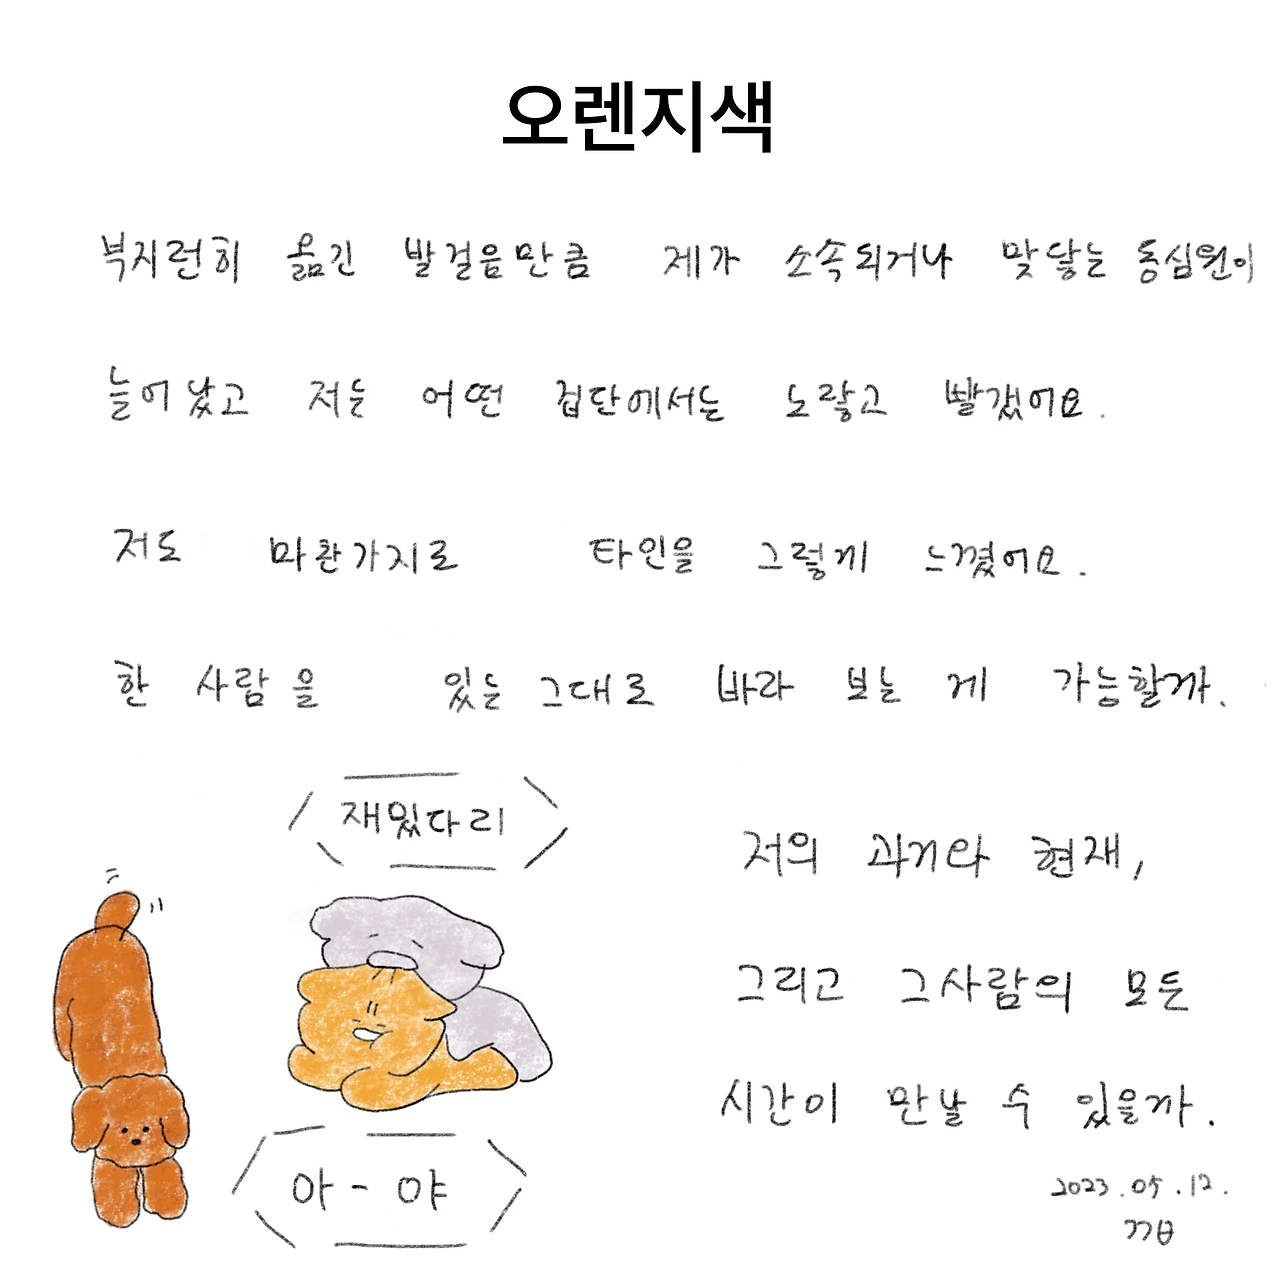 오렌지색
부지런히 옮긴 발걸음만큼 제가 소속되거나 맞닿는 동심원이
늘어났고 저는 어떤 집단에서는 노랗고 빨갰어요.
저도 마찬가지로 타인을 그렇게 느꼈어요.
한 사람을 있는 그대로 바라 보는 게 가능할까.
재밌다리
저의 과거와 현재,
그리고 그사람의 모든
시간이 만날 수 있을까.
아 - 야
2023.05.12.